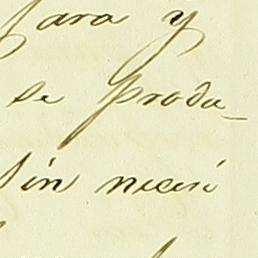 para y
se produ-
sin neces